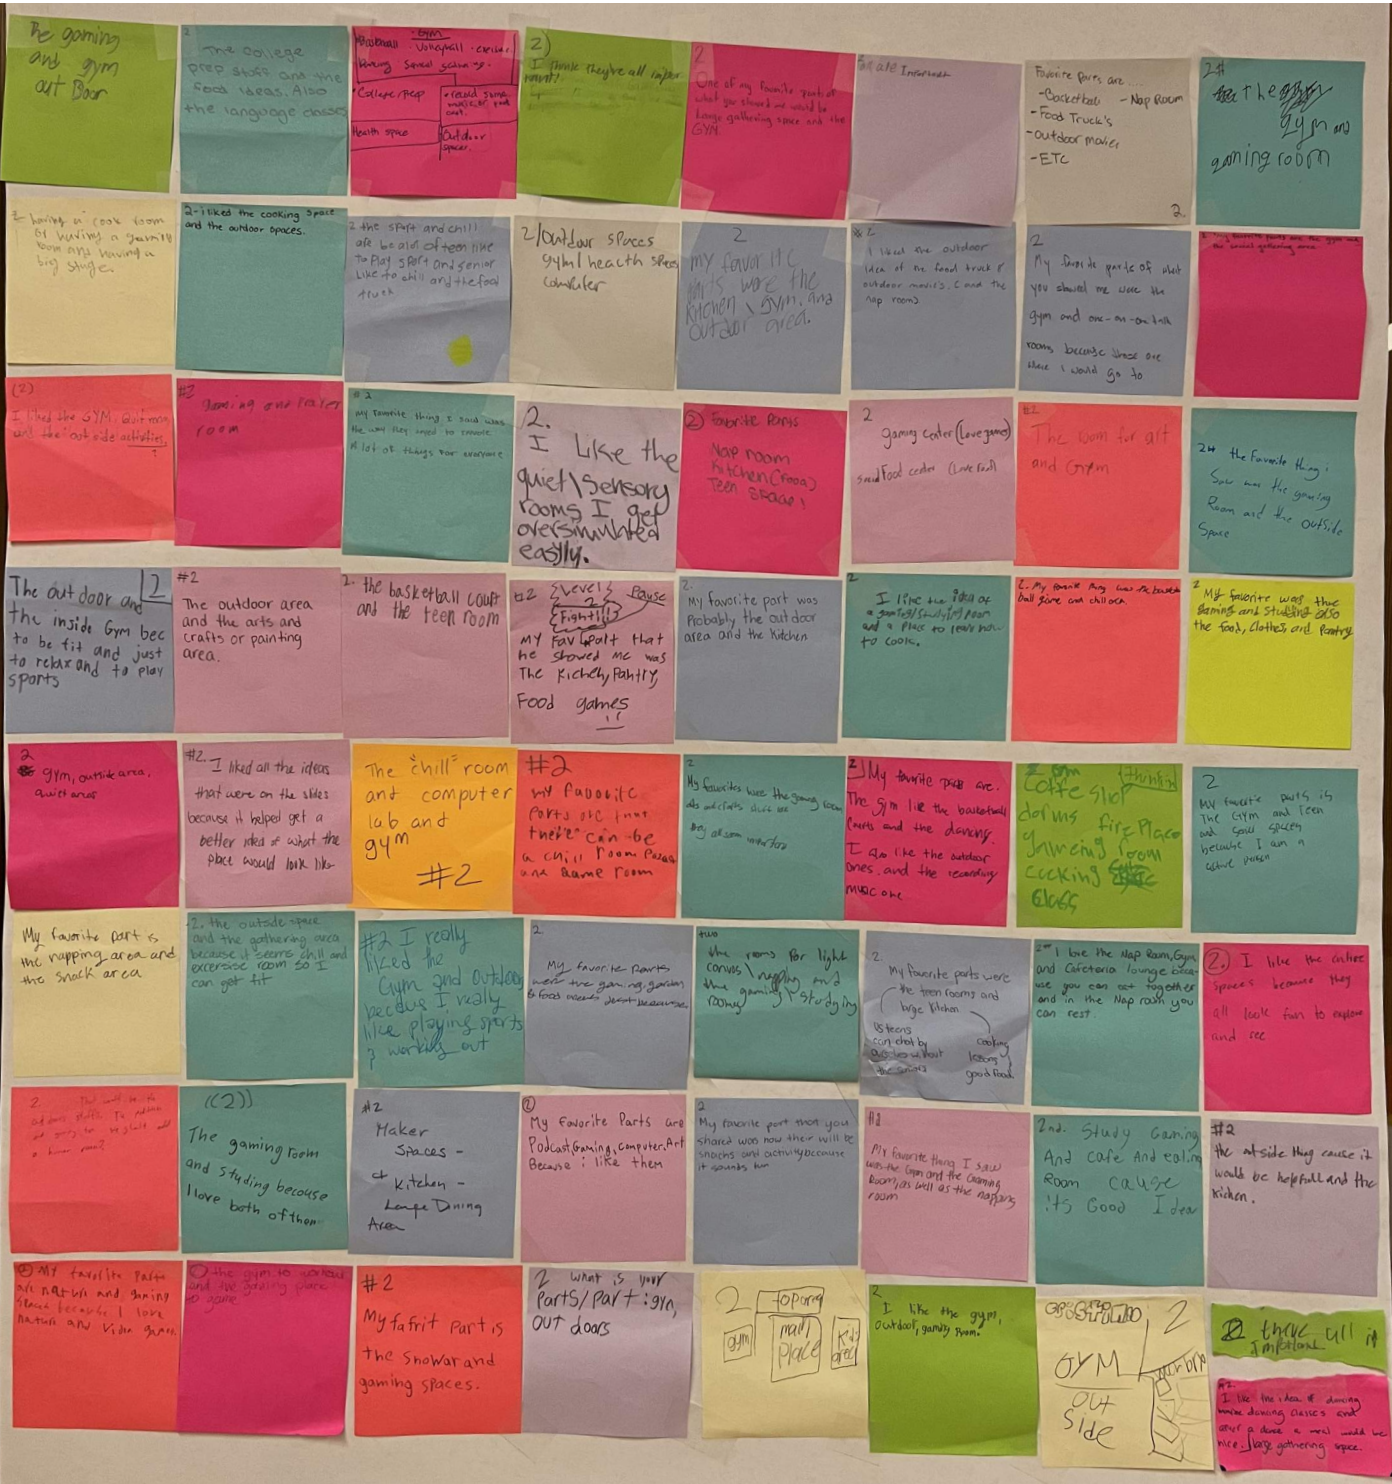 The gaming
and gym
out Door
2
The College
prep stuff and the
food ideas. Also
the language classes
Gym
Basketball · Volleyball · exercise
Dancing Social gathering.
· College Prep
· record some
music or pod
cast.
Health space
Outdoor
spaces.
2)
I think they're all impor
tant!
2
One of my favorite parts of
what you showed me would be
large gathering space and the
GYM.
are Important
Favorite Parts are....
- Basketball - Nap Room
- Food Truck's
- outdoor movies
- ETC
2.
2#
the
gym and
gaming room
2 having a cook room
or having a gaming
room and having a
big stage.
2- i liked the cooking space
and the outdoor spaces.
2 the sport and chill
are be alot of teen like
to play sport and senior
like to chill and the food
truck
2/outdoor spaces
gym/ heacth spaces
computer
2
my favorite
parts were the
kitchen \ gym, and
outdoor area.
#2
I liked the outdoor
idea of the food truck &
outdoor movie's. ( and the
nap room)
2
My favorite parts of what
you showed me were the
gym and one-on-one talk
rooms because those are
where I would go to
2 My favorite parts are the gym and
the social gathering area
(2)
I liked the GYM, Quit room,
and the out side activities,
#2
gaming and Prayer
room
#2
my favorite thing I said was
the way they need to provide
a lot of things for everyone
2.
I Like the
quiet\Sensory
rooms I get
oversimulated
easily.
② Favorite Parts
Nap room
Kitchen (Food)
Teen SPace!
2
Gaming center (Love games)
Food center (Love Food)
#2
The room for art
and Gym
2# the Favorite thing i
Saw was the gaming
Room and the outside
Space
2
The outdoor and
the inside Gym bec
to be fit and just
to relax and to play
sports
#2
The outdoor area
and the arts and
crafts or painting
area.
2. the basketball court
and the teen room
#2 {Level}
2
{Fight!!!}
Pause
MY Fav Part that
he showed me was
The Kichen, Pantry,
Food games
2.
My favorite part was
Probably the outdoor
area and the Kitchen
2
I like the idea of
a gaming/studying room
and a place to learn how
to cook.
2. My favorite thing was the basket
ball game and chill ock
2
My favorite was the
gaming and Studing also
the food, clothes, and Pantry
2
gym, outside area,
quiet area
#2.
I liked all the ideas
that were on the slides
because it helped get a
better idea of what the
place would look like
The "chill" room
and computer
lab and
gym
#2
#2
my favorite
parts are that
there can be
a chill room
and Game room
2
My favorites were the gaming room
arts and crafts
they all seem important
2) My favorite parts are.
The gym like the basketball
Courts and the dancing.
I also like the outdoor
ones, and the recording
music one
2 Gym
(Thinkin)
coffe shop
dorms fire Place
gameing room
cocking
Class
2
MY favorite parts is
The GYM and Teen
and Social spaces
because I am a
active person
My favorite part is
the napping area and
the snack area
2. the outside space
and the gathering area
because it seems chill and
excersise room so I
can get fit
#2 I really
liked the
Gym and outdoor
becaus I really
like playing sports
& working out
2.
My favorite parts
were the gaming, garden
& food areas just because
two
the rooms for light
canvas\ napping and
the gaming\ studying
rooms
2.
My favorite parts were
the teen rooms and
large kitchen
as teens
can chat by
without
the
cooking
lessons &
good food
2# I love the Nap Room, Gym,
and Cafeteria lounge becau
use you can eat together
and in the Nap room you
can rest.
②. I like the entire
spaces because they
all look fun to explore
and see
2.
((2))
The gaming room
and studing becouse
I love both of them
#2
Maker
Spaces -
Kitchen -
Large Dining
Area
②
My Favorite Parts are
Podcast, Gaming, Computer, Art
Because i like them
2
My favorite part that you
shared was how their will be
snacks and activity because
it sounds fun
#2
My favorite thing I saw
was the Gym and the Gaming
Room, as well as the napping
room
2nd. Study Gaming
And cafe And eating
Room cause
its Good Idea
#2
the outside thing cause it
would be helpfull and the
Kichen.
② My favorite Parts
are nature and gaming
spaces because I love
nature and Video games.
the gym to workout
and the gaming place
to game
#2
My fafrit Part is
the Showar and
gaming spaces.
2 what is your
Parts/Part: gym,
out doors
2
gym
main
Place
Kids
area
2
I like the gym,
outdoor, gaming room.
2
GYM
out
side
2 there all
Important
#2.
I like the idea of dancing
dancing classes and
after a dance a meal would be
nice. large gathering space.